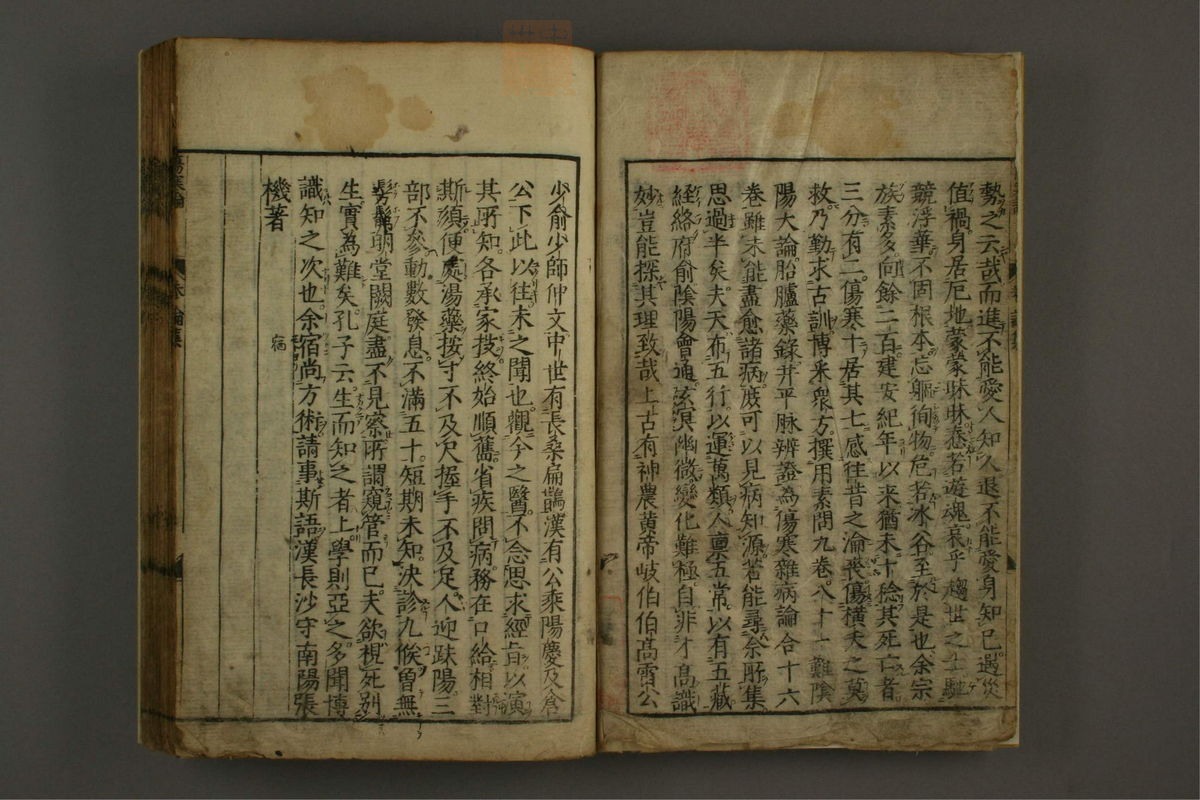 勢之云哉而進不能愛人知人退不能愛身知已遇災
値禍身居厄地蒙蒙昧昧惷若遊魂哀乎趨世之士馳
競浮華不固根本忘軀徇物危若冰谷至於是也余宗
族素多向餘二百建安紀年以来猶未十稔其死亡者
三分有二傷寒十居其七感往昔之淪喪傷橫夭之莫
救乃勤求古訓博采衆方撰用素問九卷八十一難陰
陽大論胎臚藥錄并平脉辨證為傷寒雜病論合十六
卷雖未能盡愈諸病庶可以見病知源若能尋余所集
思過半矣夫天布五行以運萬類人稟五常以有五藏
経絡府俞陰陽會通玄冥幽微變化難極自非才髙識
妙豈能探其理致哉上古有神農黄帝岐伯伯髙雷公
少俞少師仲文中世有長桑扁鵲漢有公乘陽慶及倉
公下此以往未之聞也觀今之醫不念思求經旨以演
其所知各承家技終始順舊省疾問病務在口給相對
斯須便處湯藥按寸不及尺握手不及足人迎趺陽三
部不參動數發息不滿五十短期未知決診九候曽無
髣髴明堂闕庭盡不見察所謂窺管而已夫欲視死别
生實為難矣孔子云生而知之者上學則亞之多聞博
識知之次也余宿尚方術請事斯語漢長沙守南陽張
機著
宿